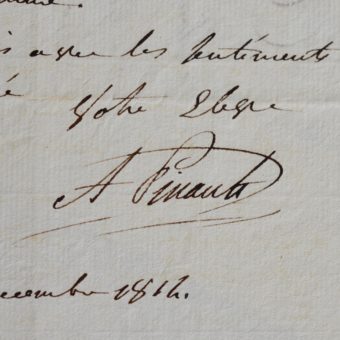 avec les sentiments
Votre Elève
A Pinault
décembre 1812.